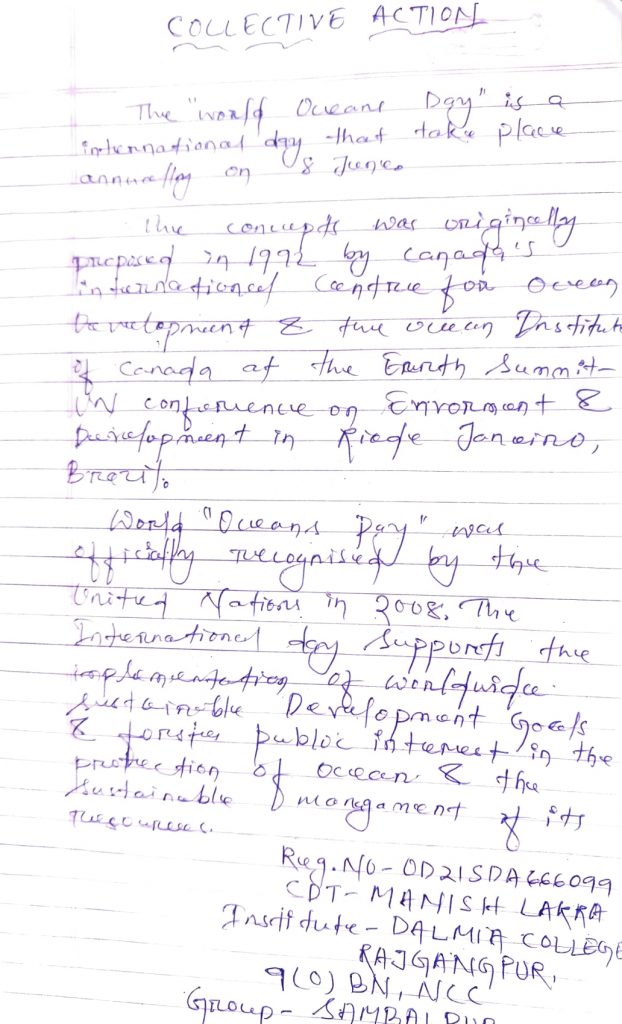 COLLECTIVE ACTION
The "World Oceans Day" is a
international day that take place
annually on 8 June.
The concepts was originally
proposed in 1992 by Canada's
international Centre for Ocean
Development & the ocean Institut
of Canada at the Earth Summit-
UN conference on Envorment & 
Development in Riode Janeiro,
Brazil.
World "Oceans Day" was
officially recognised by the
United Nations in 2008. The
International day supports the
implementation of worldwide
sustainable Development Goals
& foster public interest in the
protection of ocean & the
sustainable management of its
resources.
Reg.NO- OD21SDA666099
CDT- MANISH LAKRA
Institute- DALMIA COLLEGE
RAJGANGPUR,
9(O) BN, NCC
Group- SAMBALPUR